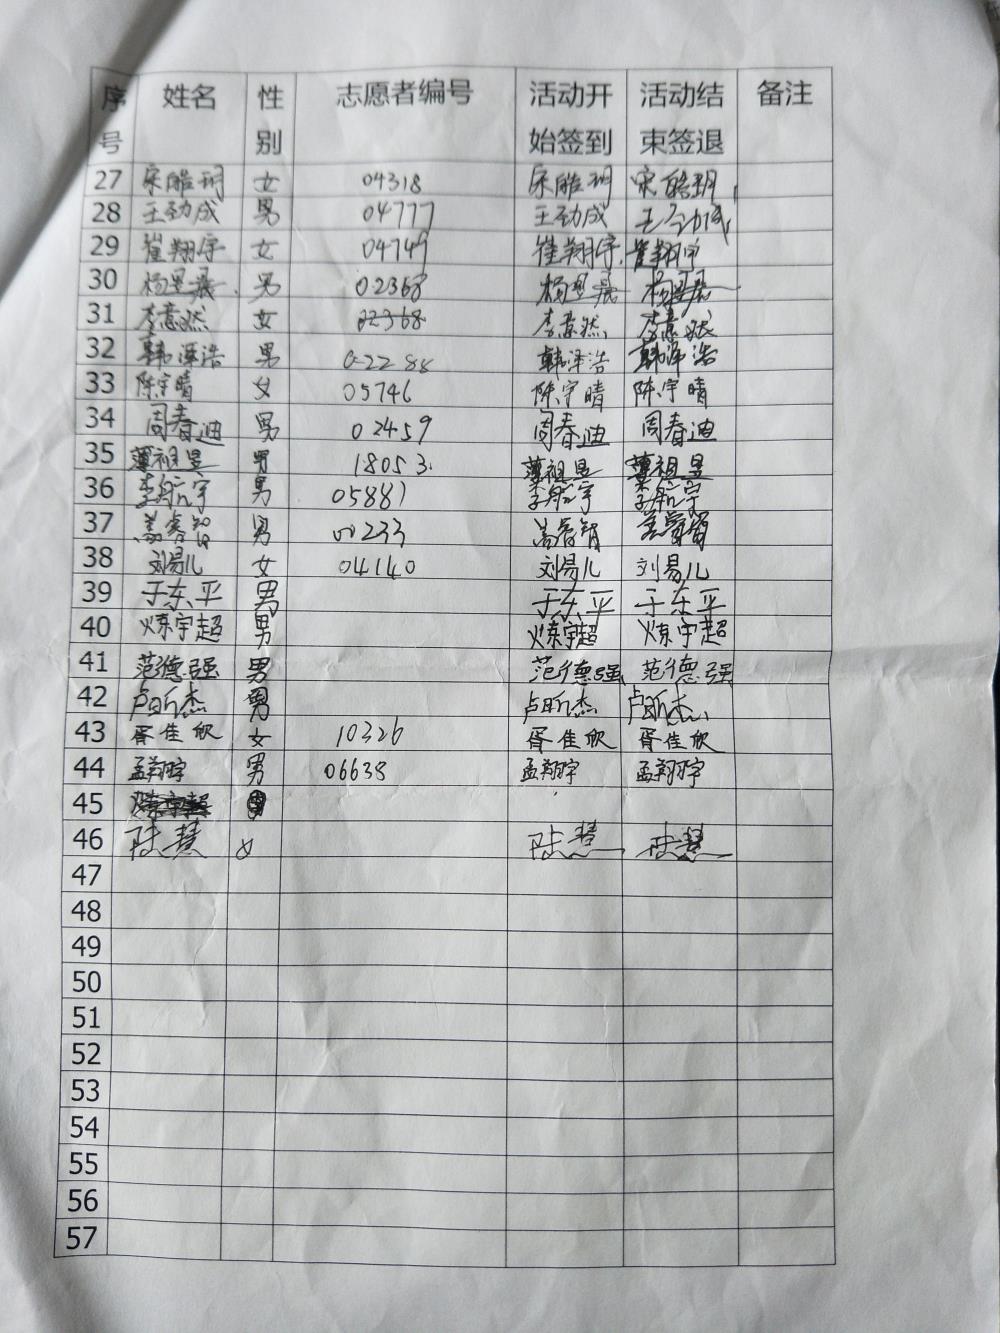 序号 姓名 性别 志愿者编号 活动开始签到 活动结束签退 备注
27 宋皓玥 女 04318 宋皓玥 宋皓玥
28 王劲成 男 04777 王劲成 王劲成
29 崔翔宇 女 04749 崔翔宇 崔翔宇
30 杨昱晨 男 02368 杨昱晨 杨昱晨
31 李意然 女 22368 李意然 李意然
32 韩泽浩 男 02288 韩泽浩 韩泽浩
33 陈宇晴 女 05746 陈宇晴 陈宇晴
34 周春迪 男 02459 周春迪 周春迪
35 薄祖昱 男 18053 薄祖昱 薄祖昱
36 李航宇 男 05881 李航宇 李航宇
37 盖睿智 男 00233 盖睿智 盖睿智
38 刘易儿 女 04140 刘易儿 刘易儿
39 于东平 男 于东平 于东平
40 炼宇超 男 炼宇超 炼宇超
41 范德强 男 范德强 范德强
42 卢昕杰 男 卢昕杰 卢昕杰
43 胥佳欣 女 10326 胥佳欣 胥佳欣
44 孟翔宇 男 06638 孟翔宇 孟翔宇
45
46 陆慧 女 陆慧 陆慧
47
48
49
50
51
52
53
54
55
56
57